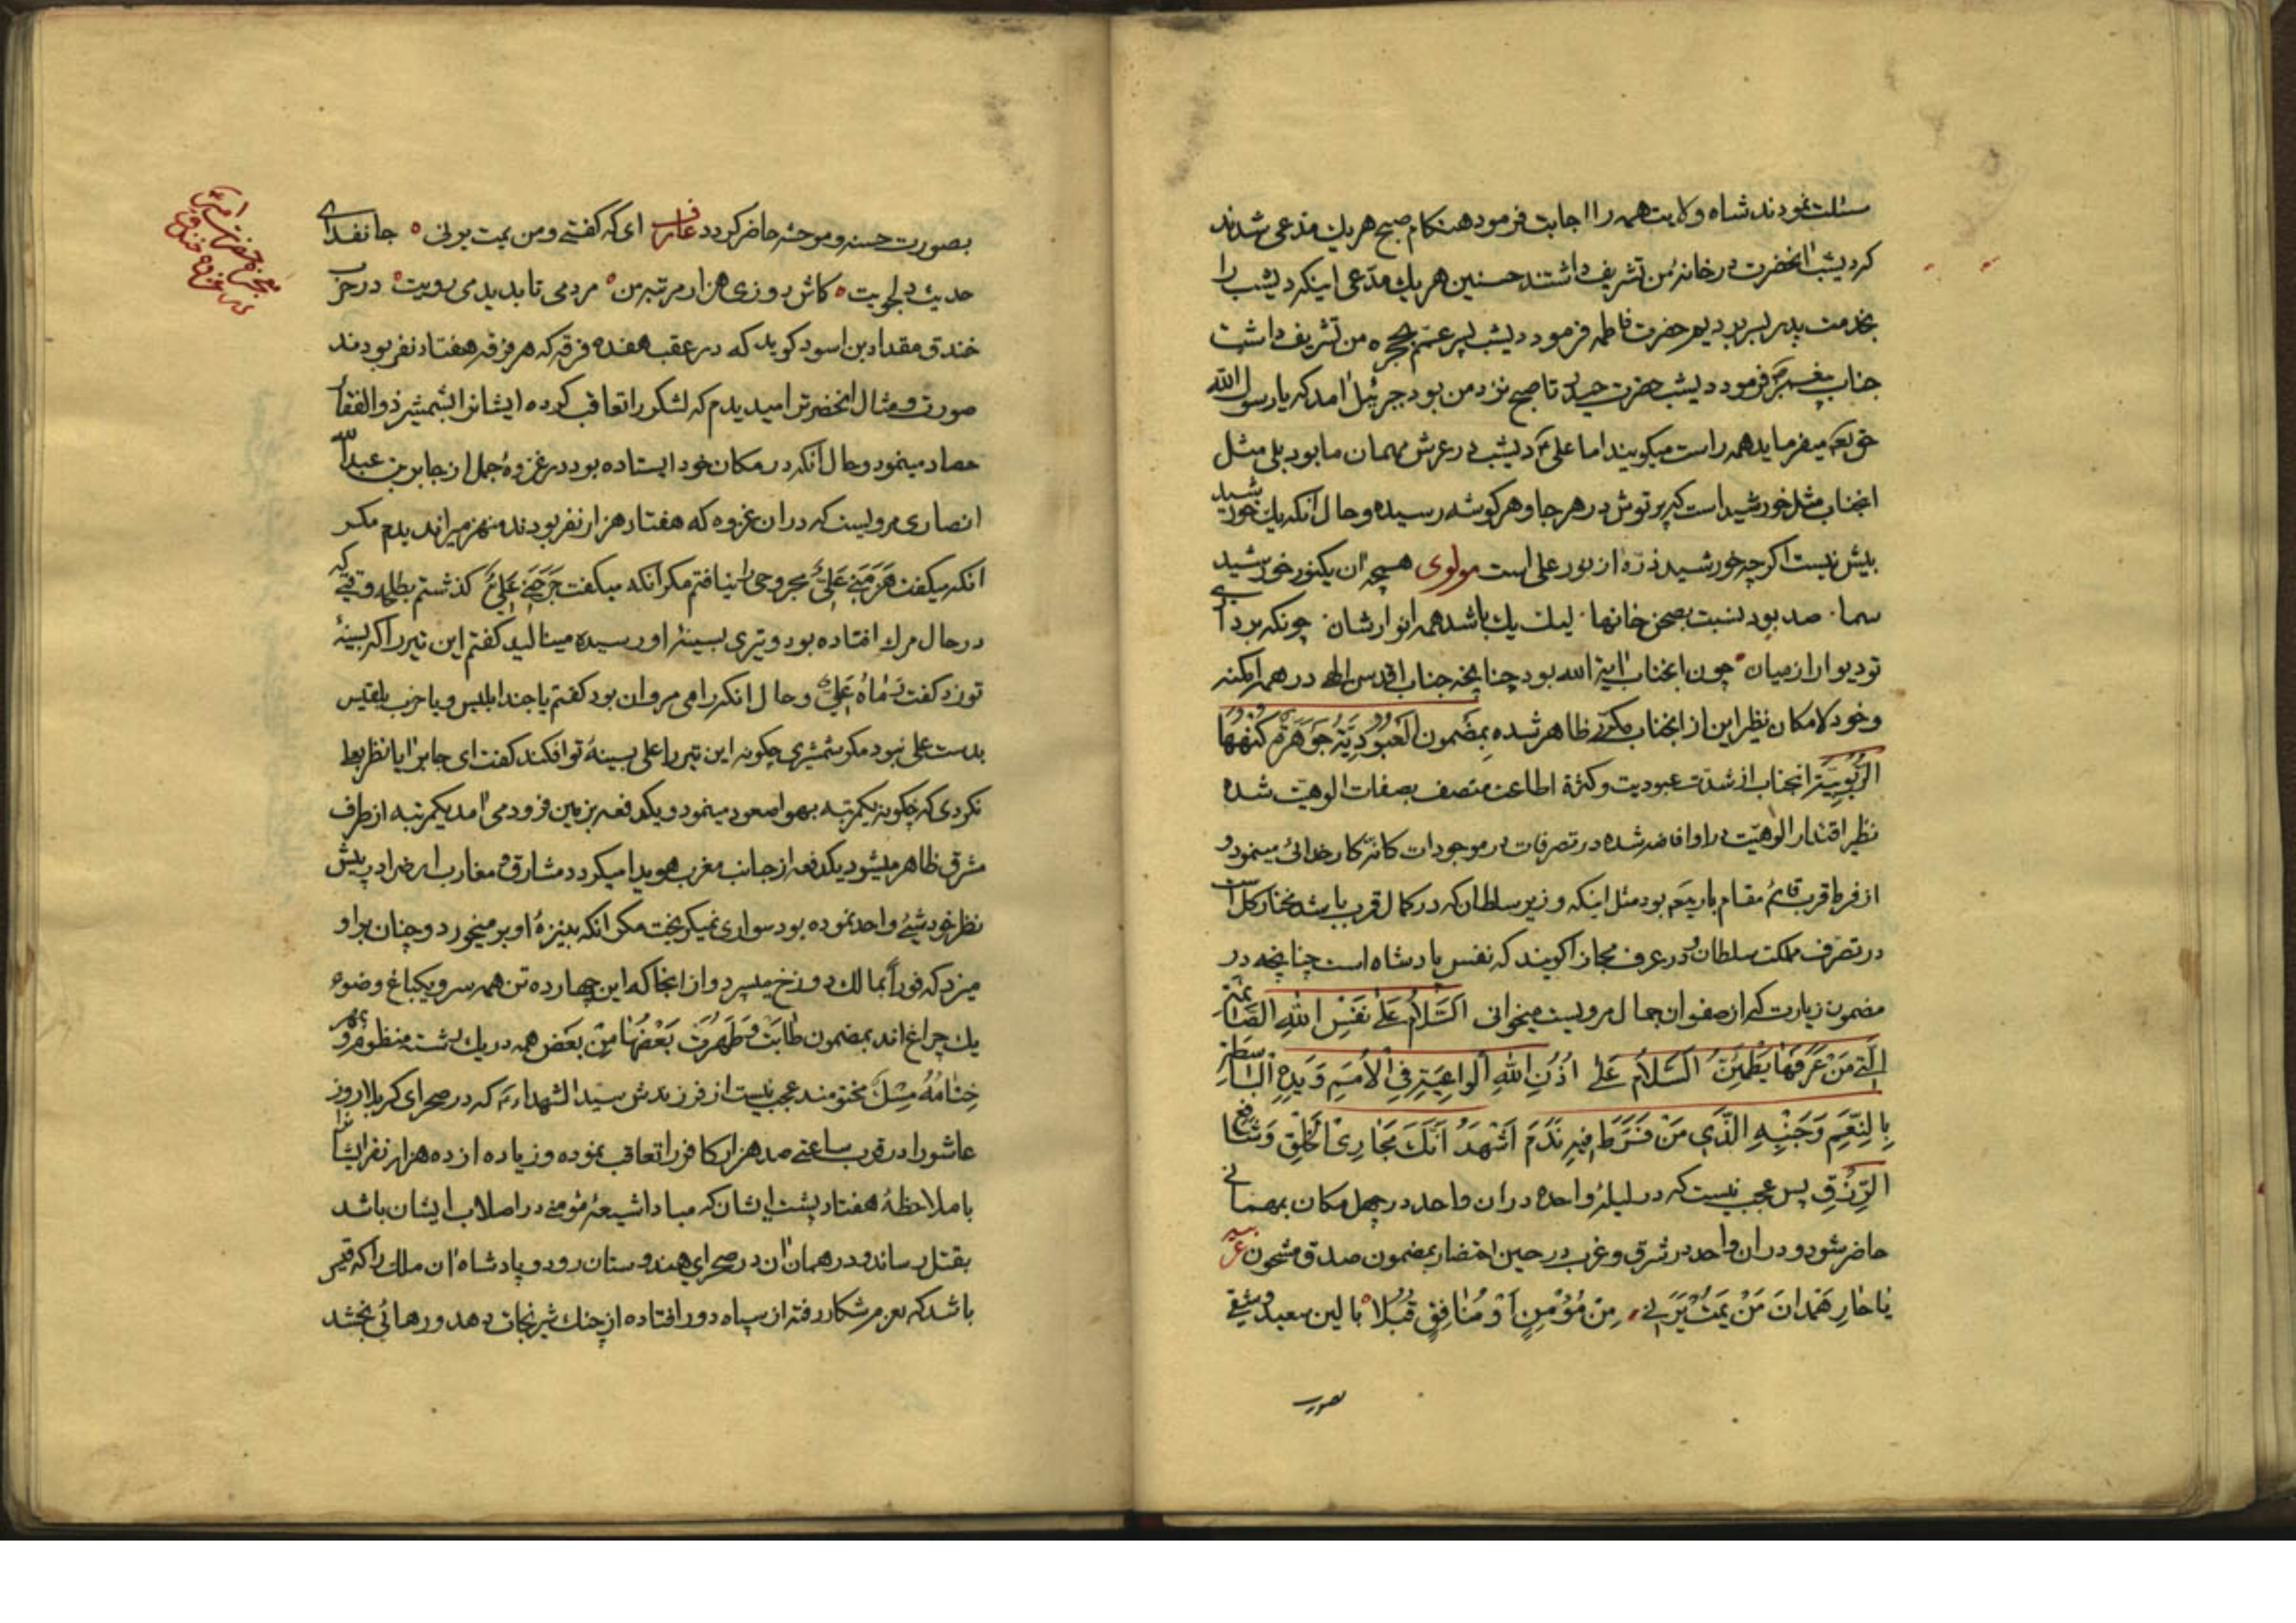 مسئلت نمودند شاه ولایت همه را اجابت فرمود هنکام صبح هریك مدعی شدند
که دیشب آنحضرت در خانه من تشریف داشتند حسنین هریك مدّعی اینکه دیشب را
بخدمت پدر بسر بردیم حضرت فاطمه فرمود دیشب پسر عمّم بحجره من تشریف داشت
جناب پیغمبر فرمود دیشب حضرت حیدر تا صبح نزد من بود جبرئیل آمد که یا رسول الله
حق تعه میفرماید همه راست میکویند اما علی دیشب در عرش مهمان ما بود بلی مثل
انجناب مثل خورشید است که پرتوش در هر جا و هر کوشه رسیده و حال آنکه یك خورشید
بیش نیست اکرچه خورشید ذرّه از نور علی است مولوی همچه آن یکنور خورشید
سما صد بود نسبت بصحن خانها لیك یك باشد همه انوارشان چونکه بردا
تو دیوار از میان چون انجناب آیة الله بود چنانچه جناب اقدس الهی در همه امکنه
و خود لامکان نظیر این از انجناب مکرر ظاهر شده بمضمون اَلعُبُودِیَّةُ جَوْهَرَةٌ کُنْهُهَا
الرُّبُوبِیَّة انجناب از شدّت عبودیت و کثرة اطاعت متصف بصفات الوهیت شده
نظیر اقتدار الوهیّت در او افاضه شده در تصرفات در موجودات کانّه کار خدائی مینمود و
از فرط قرب قائم مقام باریتعه بود مثل اینکه وزیر سلطان که در کمال قرب باشد مختار کل است
در تصرف مملکت سلطان و در عرف مجازا کویند که نفس پادشاه است چنانچه در
مضمون زیارت که از صفوان جمال مرویست میخوانی اَلسَّلاٰمُ عَلیٰ نَفْسِ اللهِ القائمة
الَّتی مَنْ عَرَفَهٰا یَطْمَئِنُّ اَلسَّلاٰمُ عَلیٰ اُذُنِ اللهِ الْواعِیَةِ فِی الْاُمَمِ وَ یَدِهِ الْبٰاسِطَةِ
بِالنِّعَمِ وَ جَنْبِهِ الَّذی مَنْ فَرَّطَ فیهِ نَدِمَ اَشْهَدُ اَنَّكَ مَجٰارِی الْخَلْقِ وَ شٰافِعُ
الرِّزْقِ پس عجب نیست که در لیلهٴ واحده در ان واحد در چهل مکان بمهمانی
حاضر شود و در ان واحد در شرق و غرب در حین احتضار بمضمون صدق مشحون عربیه
یٰا حٰارِ هَمْدانَ مَنْ یَمُتْ یَرَنی مِنْ مُؤْمِنٍ اَوْ مُنٰافِقٍ قُبُلاً بالین سعید و شقی
بصورت
بصورت حسنه و موحشه حاضر کردد فارس ای که کفتی و من یمت یرنی جان فدای
حدیث دلجویت کاش روزی هزار مرتبه من مردمی تا بدیدمی رویت در حرب
خندق مقداد بن اسود کوید که در عقب هفده فرقه که هر فرقه هفتاد نفر بودند
صورت و مثال انحضرترا میدیدم که لشکر را تعاقب کرده ایشانرا بشمشیر ذوالفقار
حصاد مینمود و حال آنکه در مکان خود ایستاده بود در غزوهٴ جمل از جابر بن عبدالله
انصاری مرویست که در ان غزوه که هفتاد هزار نفر بودند منهزمیرا ندیدم مکر
انکه میکفت هَزَمَنی عَلِیٌّ مجروحی را نیافتم مکر انکه میکفت جَرَحَنی عَلِیٌّ کذشتم بطلحه وقتی که
در حال مرك افتاده بود و تیری بسینهٴ او رسیده مینالید کفتم این تیر را که بسینهٴ
تو زد کفت رَمٰاهُ عَلِیٌّ و حال انکه رامی مروان بود کفتم یا جند ابلیس و یا حزب بلقیس
بدست علی نبود مکر شمشیری چکونه این تیر را علی بسینهٴ تو افکند کفت ای جابر ایا نظر بعلی
نکردی که چکونه یکمرتبه بهوا صعود مینمود و یکدفعه بزمین فرود می امد یکمرتبه از طرف
مشرق ظاهر میشود یکدفعه از جانب مغرب هویدا میکردد مشارق و مغارب ارض را در پیش
نظر خود شیئی واحد نموده بود سواری نمیکریخت مکر انکه بنیزهٴ او بر میخورد و چنان بر او
میزد که فوراً بمالك دوزخ میسپرد و از انجا که این چهارده تن همه سرو یکباغ و ضوء
یك چراغ اند بمضمون طٰابَتْ وَ طَهُرَتْ بَعْضُهٰا مِنْ بَعْضٍ همه در یك رشته منظوم و بمهر
خِتٰامُهُ مِسْكٌ مختومند عجب نیست از فرزندش سید الشهداء که در صحرای کربلا روز
عاشورا در قرب ساعتی صد هزار کافر را تعاقب نموده و زیاده از ده هزار نفر ایشانرا
با ملاحظهٴ هفتاد پشت ایشان که مبادا شیعهٴ مؤمنی در اصلاب ایشان باشد
بقتل رساند و در همان ان در صحرای هندوستان رود و پادشاه ان ملك را که قیس
باشد که بعزم شکار رفته از سپاه دور افتاده از چنك شیر نجات دهد و رهائی بخشد
معجزه حضرت امیر
در غزوه خندق